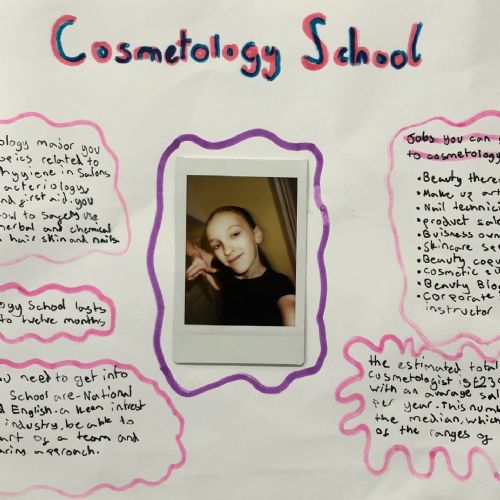 Cosmetology School
ology major you
topics related to
hygiene in Salons
acteriology
and first aid. you
how to safely use
herbal and chemical
hair skin and nails.
ogy School lasts
to twelve months
you need to get into
School are-National
English. a keen intrest
industry. be able to
art of a team and
aring approach.
Jobs you can
to cosmetology
• Beauty thera
• Make up art
• Nail technici
• product sale
• Buisness own
• Skincare se
• Beauty copy
• cosmetic su
• Beauty Blog
• Corporate
instructor
the estimated total
cosmetologist is £23
with an avarage sal
per year. This num
the median, which
of the ranges of